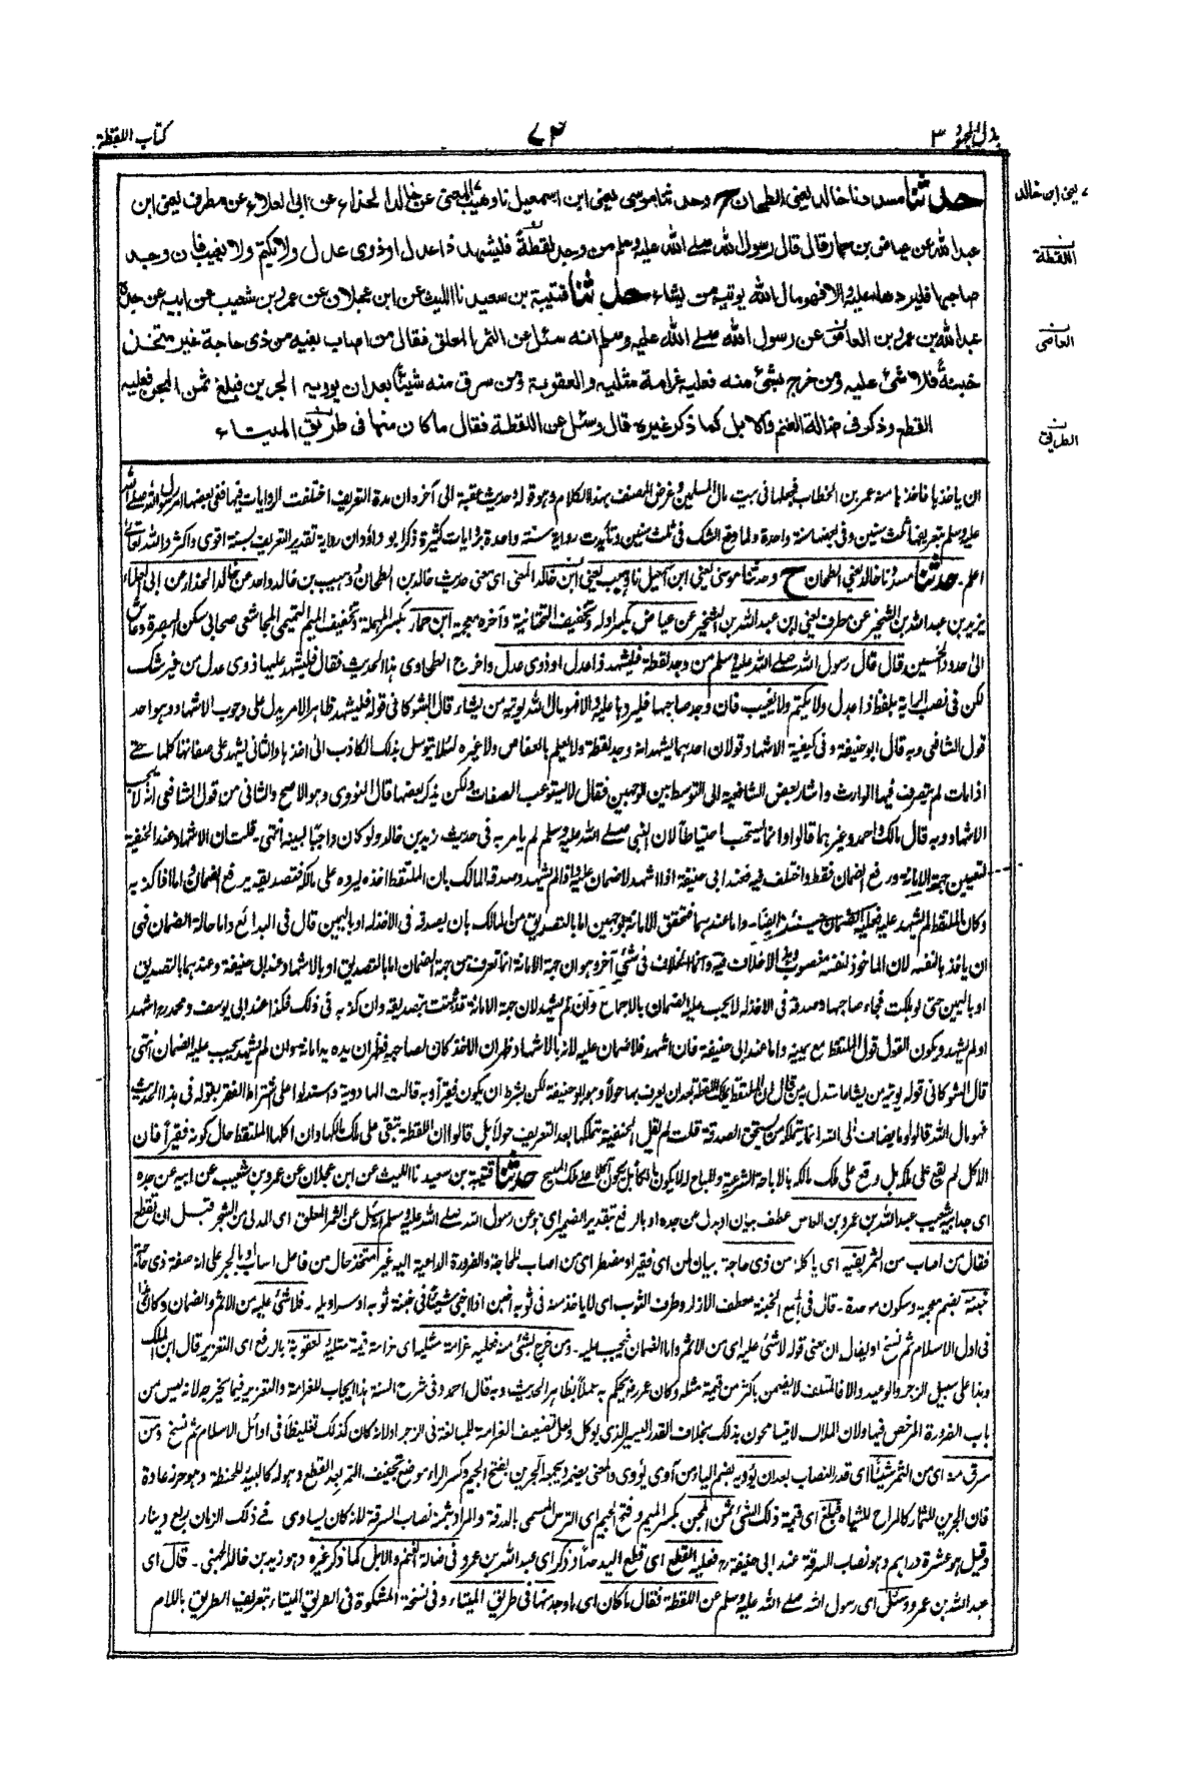 بذل المجهود ٣
٧٢
كتاب اللقطة
حدثنا مسدد نا خالد يعنى الطحان ح وحدثنا موسى يعنى ابن اسمعيل نا وهيب المعنى عن خالد الحذاء عن ابى العلاء عن مطرف يعنى ابن
عبد الله عن عياض بن حمار قال قال رسول الله صلے الله عليه وسلم من وجد لقطة فليشهد ذا عدل او ذوى عدل ولا يكتم ولا يغيب فان وجد
صاحبها فليردها عليه والا فهو مال الله يوتيه من يشاء حدثنا قتيبة بن سعيد نا الليث عن ابن عجلان عن عمرو بن شعيب عن ابيه عن جده
عبد الله بن عمرو بن العاص عن رسول الله صلے الله عليه وسلم انه سئل عن الثمر المعلق فقال من اصاب بفيه من ذى حاجة غير متخذ
خبنة فلا شئ عليه ومن خرج بشئ منه فعليه غرامة مثليه والعقوبة ومن سرق منه شيئا بعد ان يوويه الجرين فبلغ ثمن المجن فعليه
القطع وذكر فى ضالة الغنم والابل كما ذكر غيره قال وسئل عن اللقطة فقال ما كان منها فى طريق الميتاء
يعنى ابن خالد
اللقطة
العاصى
الطريق
ان ياخذ ها فاخذ ها منه عمر بن الخطاب فجعلها فى بيت مال المسلمين وغرض المصنف بهذا الكلام وهو قوله وحديث عقبة الى آخره ان مدة التعريف اختلفت الروايات فيها ففى بعضها امر رسول الله صلے الله
عليه وسلم بتعريفها ثلث سنين وفى بعضها سنة واحدة ولما وقع الشك فى ثلث سنين وتأيدت رواية سنة واحدة بروايات كثيرة ذكر ابو داؤد ان رواية تقدير التعريف بسنة اقوى واكثر والله تعالى
اعلم۔ حدثنا مسدد نا خالد يعنى الطحان ح وحدثنا موسى يعنى ابن اسمعيل نا وهيب يعنى ابن خالد المعنى اى معنى حديث خالد بن الطحان و وهيب بن خالد واحد عن خالد الحذاء عن ابى العلاء
يزيد بن عبد الله بن الشخير عن مطرف يعنى ابن عبد الله بن الشخير عن عياض بكسر اوله وتخفيف التحتانية وآخره معجمة ابن حمار بكسر المهملة وتخفيف الميم التميمى المجاشعى صحابى سكن البصرة وعاش
الى حدود الخمسين قال قال رسول الله صلے الله عليه وسلم من وجد لقطة فليشهد ذا عدل او ذوى عدل واخرج الطحاوى هذا الحديث فقال فليشهد عليها ذوى عدل من غير شك
لكن فى نصب الراية بلفظ ذا عدل ولا يكتم ولا يغيب فان وجد صاحبها فليردها عليه والا فهو مال الله يوتيه من يشاء قال الشوكانى قوله فليشهد ظاهر الامر يدل على وجوب الاشهاد وهو احد
قول الشافعى وبه قال ابو حنيفة وفى كيفية الاشهاد قولان احدهما يشهد انه وجد لقطة ولا يعلم بالعفاص ولا غيره لئلا يتوسل بذلك الكاذب الى اخذها والثانى يشهد على صفاتها كلها حتے
اذا مات لم يتصرف فيها الوارث واشار بعض الشافعية الى التوسط بين الوجهين فقال لا يستوعب الصفات ولكن يذكر بعضها قال النووى وهو الاصح والثانى من قول الشافعى انه لا يجب
الاشهاد وبه قال مالك واحمد وغيرهما قالوا وانما يستحب احتياطا لان النبى صلے الله عليه وسلم لم يامر به فى حديث زيد بن خالد ولو كان واجبا لبينه انتهى۔ قلت ان الاشهاد عند الحنفية
لتعيين جهة الامانة ورفع الضمان فقط واختلف فيه فعند ابى حنيفة اذا اشهد لا ضمان عليه واذا لم يشهد وصدقه المالك بان الملتقط اخذه ليرده على مالكه فتصديقه يرفع الضمان واما اذا كذبه
وكان الملتقط لم يشهد عليه فعليه الضمان حينئذ ايضا۔ واما عندهما فتحقق الامانة بوجهين اما بالتصديق من المالك بان يصدقه فى الاخذ له او باليمين قال فى البدائع واما حالة الضمان فهى
ان ياخذ بالنفسه لان الماخوذ لنفسه مغصوب وهذا لا خلاف فيه وانما الخلاف فى شئ آخر وهو ان جهة الامانة انما تعرف من جهة الضمان اما بالتصديق او بالاشهاد عند ابى حنيفة وعندهما بالتصديق
او باليمين حتى لو هلكت فجاء صاحبها وصدقه فى الاخذ له لا يجب عليه الضمان بالاجماع وان لم يشهد لان جهة الامانة قد ثبتت بتصديقه وان كذبه فى ذلك فكذا عند ابى يوسف ومحمد رح اشهد
او لم يشهد ويكون القول قول الملتقط مع يمينه واما عند ابى حنيفة فان اشهد فلا ضمان عليه لانه بالاشهاد ظهر ان الاخذ كان لصاحبه فظهر ان يده يد امانة وان لم يشهد يجب عليه الضمان انتهى
قال الشوكانى قوله يوتيه من يشاء استدل به من قال ان الملتقط يملك اللقطة بعد ان يعرف بها حولا وهو ابو حنيفة لكن بشرط ان يكون فقيرا وبه قالت الهادوية واستدلوا على اشتراط الفقر بقوله فى هذا الحديث
فهو مال الله قالوا وما يضاف الى الله انما يتملكه من يستحق الصدقة قلت لم يقل الحنفية بتملكها بعد التعريف حولا بل قالوا ان اللقطة تبقى على ملك مالكها وان اكلها الملتقط حال كونه فقيرا فان
الاكل لم يقع على ملكه بل وقع على ملك مالكه بالاباحة الشرعية والمباح لا يكون ملكا بل يكون آكلا على ملك المبيح حدثنا قتيبة بن سعيد نا الليث عن ابن عجلان عن عمرو بن شعيب عن ابيه عن جده
اى جد ابيه شعيب عبد الله بن عمرو بن العاص عطف بيان او بدل عن جده او بالرفع بتقدير الضمير اى هو عن رسول الله صلے الله عليه وسلم انه سئل عن الثمر المعلق اى المدلى من الشجر قبل ان تقطع
فقال من اصاب من الثمر بفيه اى باكله من ذى حاجة بيان لمن اى فقير او مضطر اى من اصاب للحاجة والضرورة الداعية اليه غير متخذ حال من فاعل اصاب او بالجر على انه صفة ذى حاجة
خبنة بضم معجمة وسكون موحدة۔ قال فى المجمع الخبنة معطف الازار وطرف الثوب اى لا ياخذ منه فى ثوبه اخبن اذا خبى شيئا فى خبنة ثوبه او سراويله۔ فلا شئ عليه من الاثم والضمان وكان هذا
فى اول الاسلام ثم نسخ او يقال ان معنى قوله لا شئ عليه اى من الاثم واما الضمان فيجب عليه۔ ومن خرج بشئ منه فعليه غرامة مثليه اى غرامة قيمة مثليه والعقوبة بالرفع اى التعزير قال ابن الملك
وهذا على سبيل الزجر والوعيد والا فالمتلف لا يضمن باكثر من قيمة مثله وكان عمر رض يحكم به عملا بظاهر الحديث وبه قال احمد وفى شرح السنة هذا ايجاب للغرامة والتعزير فيما يخرجه لانه ليس من
باب الضرورة المرخص فيها ولان الملاك لا يتسامحون بذلك بخلاف القدر اليسير الذى يوكل ولعل تضعيف الغرامة للمبالغة فى الزجر اولانه كان كذلك تغليظا فى اوائل الاسلام ثم نسخ ومن
سرق منه اى من الثمر شيئا اى قدر النصاب بعد ان يوويه بضم الياء من آوى يؤوى والمعنى يضمه ويجمعه الجرين بفتح الجيم وكسر الراء موضع تجفيف التمر بعد القطع وهو له كالبيدر للحنطة وهو حرز عادة
فان الجرين للثمار كالمراح للشياه فبلغ اى قيمة ذلك الشئ ثمن المجن بكسر الميم وفتح الجيم اى الترس المسمى بالدرقة والمراد بثمنه نصاب السرقة لانه كان يساوى فے ذلك الزمان ربع دينار
وقيل هو عشرة دراهم وهو نصاب السرقة عند ابى حنيفة رح فعليه القطع اى قطع اليد حدا وذكر اى عبد الله بن عمرو فى ضالة الغنم والابل كما ذكر غيره وهو زيد بن خالد الجهنى۔ قال اى
عبد الله بن عمرو وسئل اى رسول الله صلے الله عليه وسلم عن اللقطة فقال ما كان اى ما وجد منها فى طريق الميتاء وفى نسخة المشكوة فى الطريق الميتاء بتعريف الطريق باللام